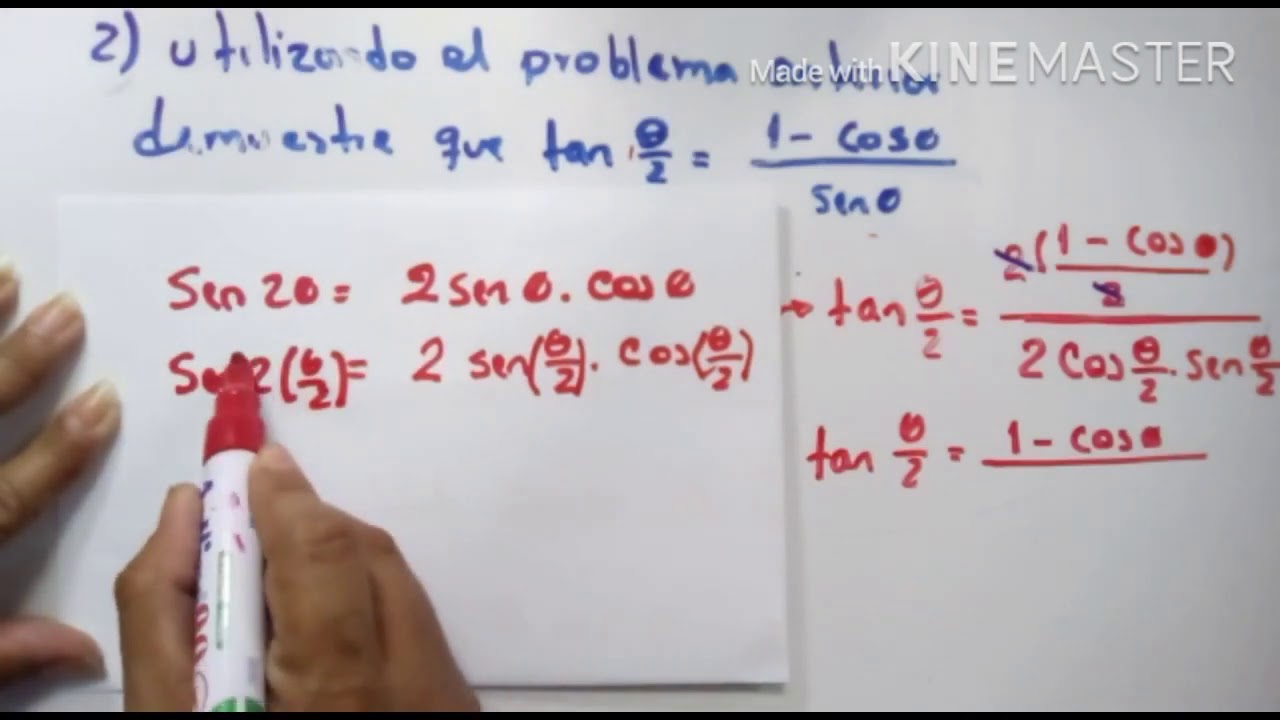 2) utilizando el problema anterior
Made with KINEMASTER
demuestre que tan θ/2 = 1 - cosθ / senθ
Sen 2θ = 2 sen θ . cos θ
Sen 2(θ/2) = 2 sen(θ/2) . cos(θ/2)
→ tan θ/2 = 2(1 - cos θ / 2) / 2 cos θ/2 . sen θ/2
tan θ/2 = 1 - cos θ